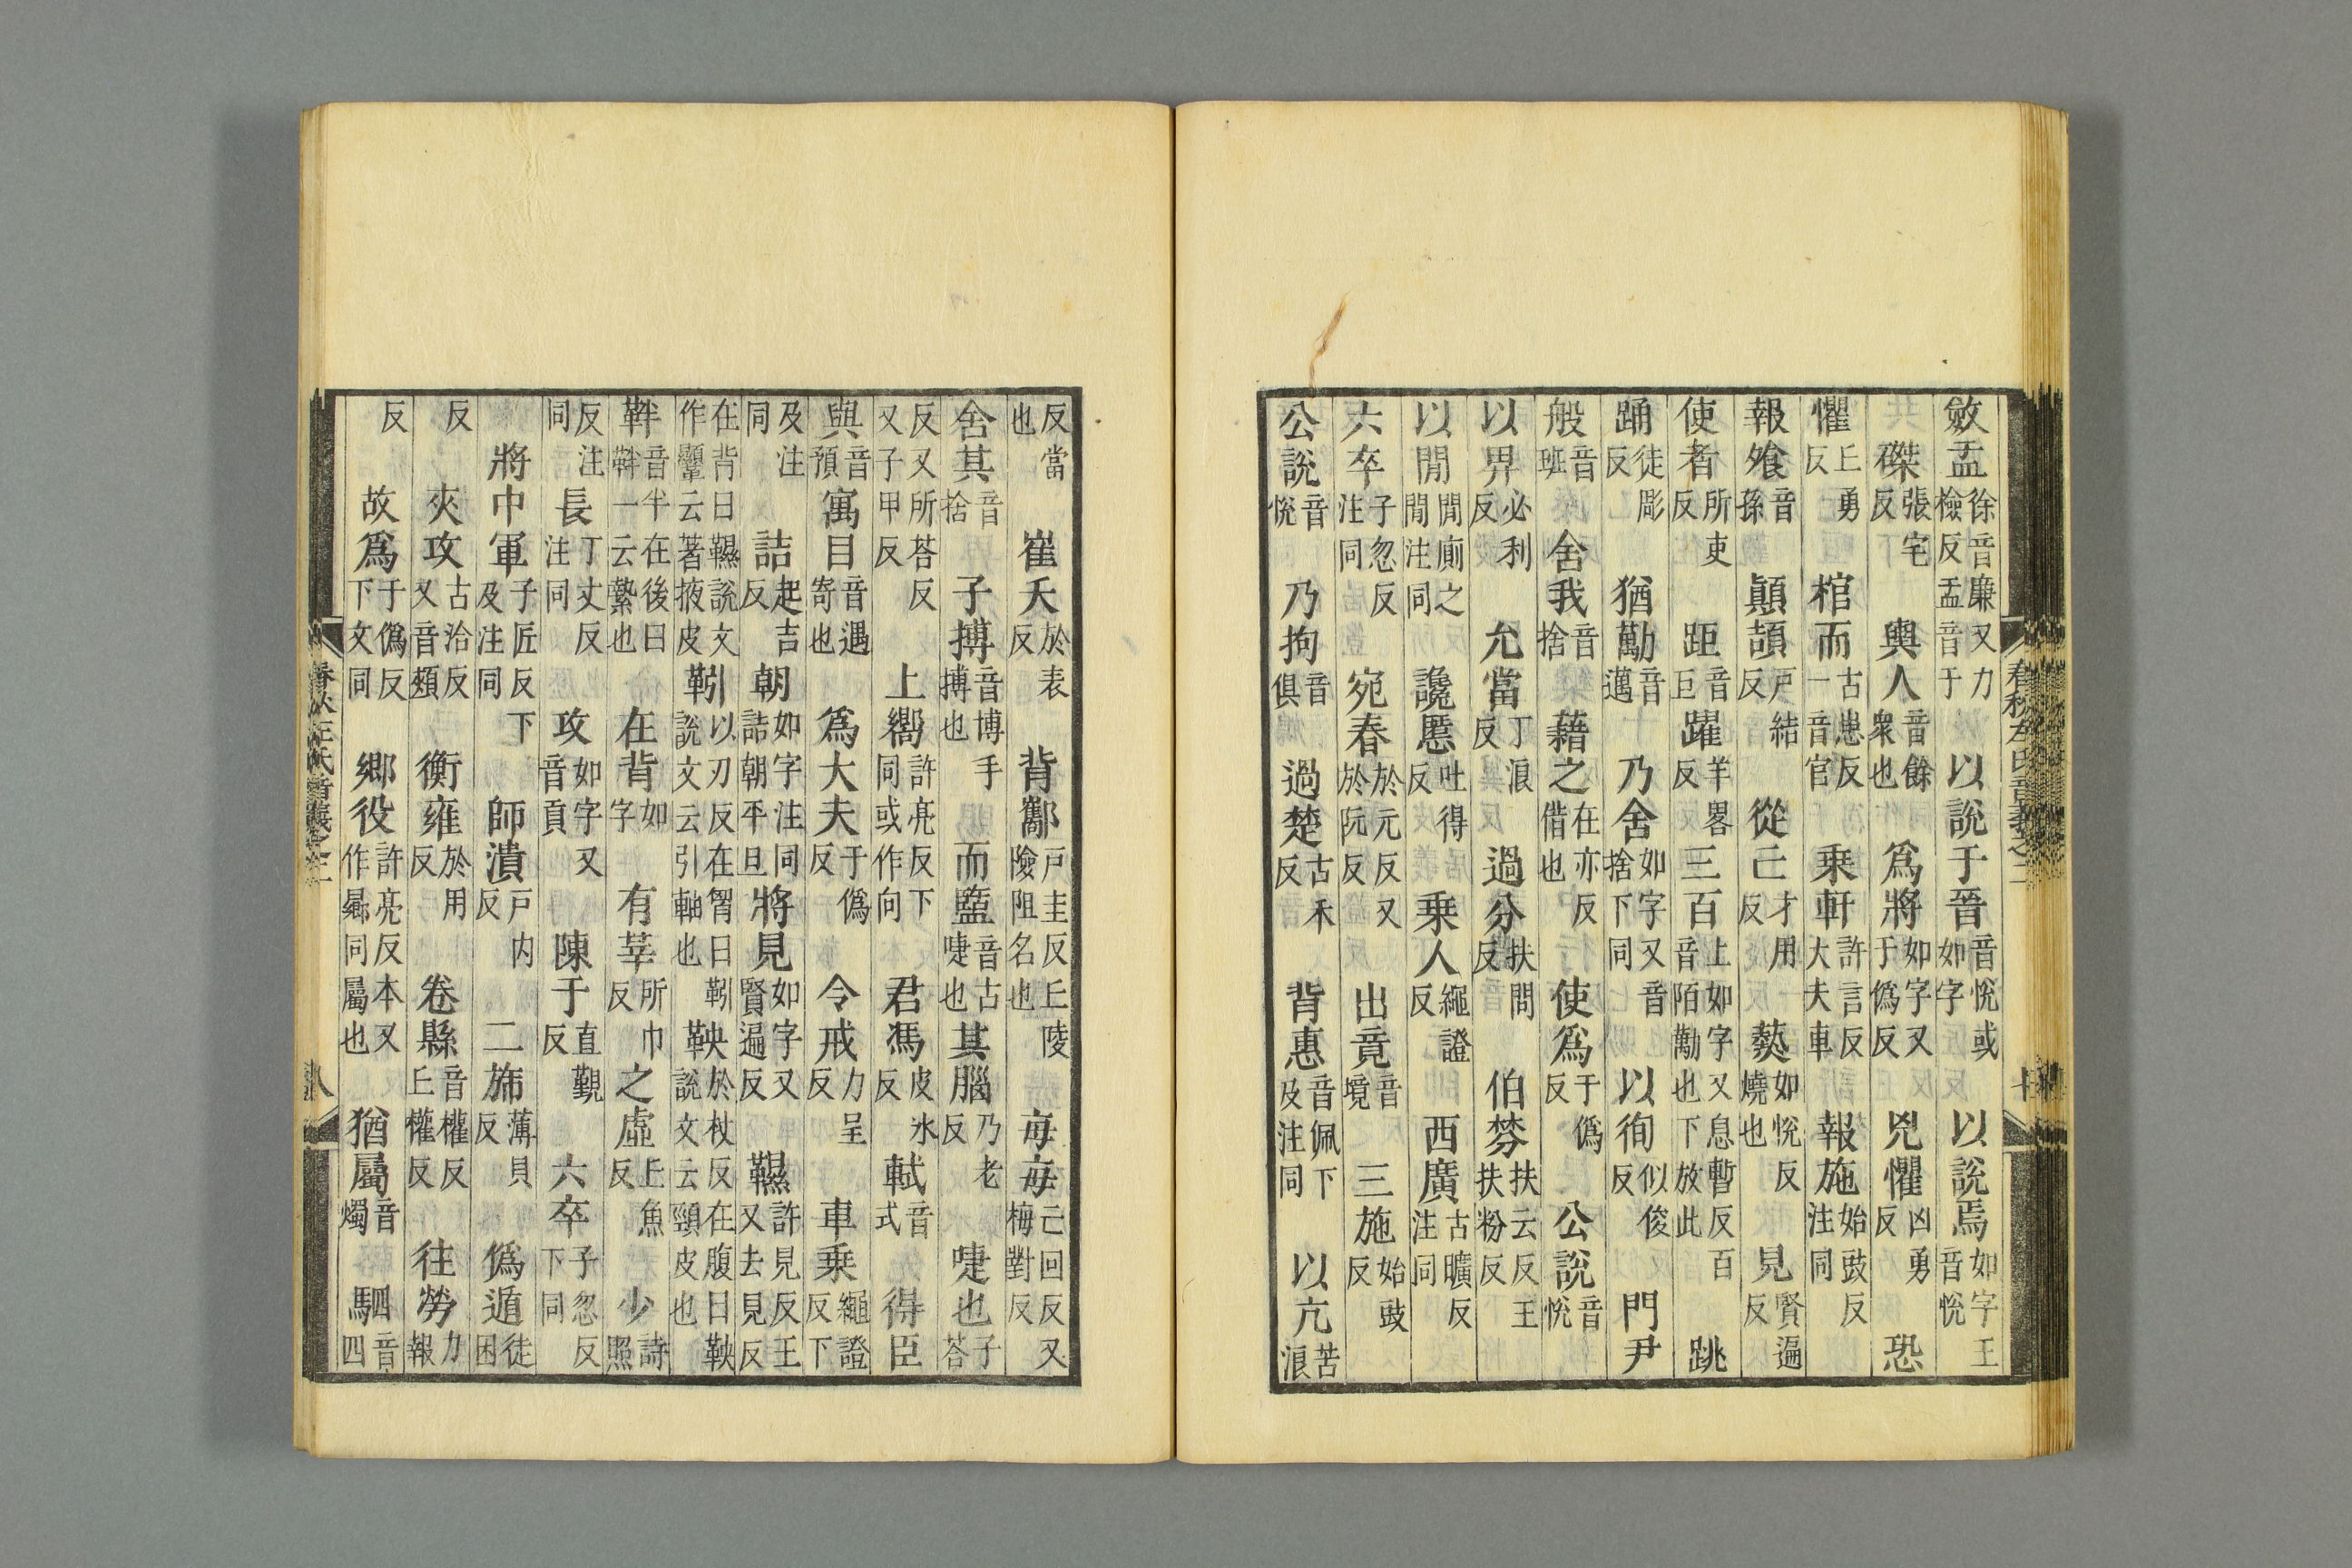 斂盂徐音廉又力檢反盂音于以說于晉音悅或如字以說焉如字王音悅
磔張宅反輿人音餘衆也爲將如字又于僞反兇懼凶勇反恐
懼丘勇反棺而古患反一音官乗軒許言反大夫車報施始豉反注同
報飧音孫顛頡戸結反從己才用反爇如悅反燒也見賢遍反
使者所吏反距音巨躍羊畧反三百上如字又息暫反百音陌勱也下放此跳
踊徒彫反猶勱音邁乃舍如字又音捨下同以徇似俊反門尹
般音班舍我音捨藉之在亦反借也使爲于僞反公說音悅
以畀必利反允當丁浪反過分扶問反伯棼扶云反王扶粉反
以閒閒廁之閒注同讒慝吐得反乗人繩證反西廣古曠反注同
六卒子忽反注同宛春於元反又於阮反出竟音境三施始豉反
公說音悅乃拘音俱過楚古禾反背惠音佩下及注同以亢苦浪
反當也崔夭於表反背酅戸圭反丘陵險阻名也每每亡回反又梅對反
舍其音捨子搏音博手搏也而盬音古啑也其腦乃老反啑也子荅
反又所荅反又子甲反上嚮許亮反下同或作向君馮皮冰反軾音式得臣
與音預寓目音遇寄也爲大夫于僞反令戒力呈反車乗繩證反下
及注同詰起吉反朝如字注同詰朝平旦將見如字又賢遍反韅許見反王又去見反
在背曰韅說文作𩍜云著掖皮靷以刃反在胷曰靷說文云引軸也鞅於杖反在腹曰鞅說文云頸皮也
靽音半在後曰靽一云縶也在背如字有莘所巾反之虛上魚反少詩照
反注同長丁丈反注同攻如字又音貢陳于直覲反六卒子忽反下同
將中軍子匠反下及注同師潰戸内反二旆薄貝反僞遁徒困
反夾攻古洽反又音頰衡雍於用反卷縣音權反丘權反往勞力報
反故爲于僞反下文同鄉役許亮反本又作曏同屬也猶屬音燭駟音四
春秋左氏音義之二
八